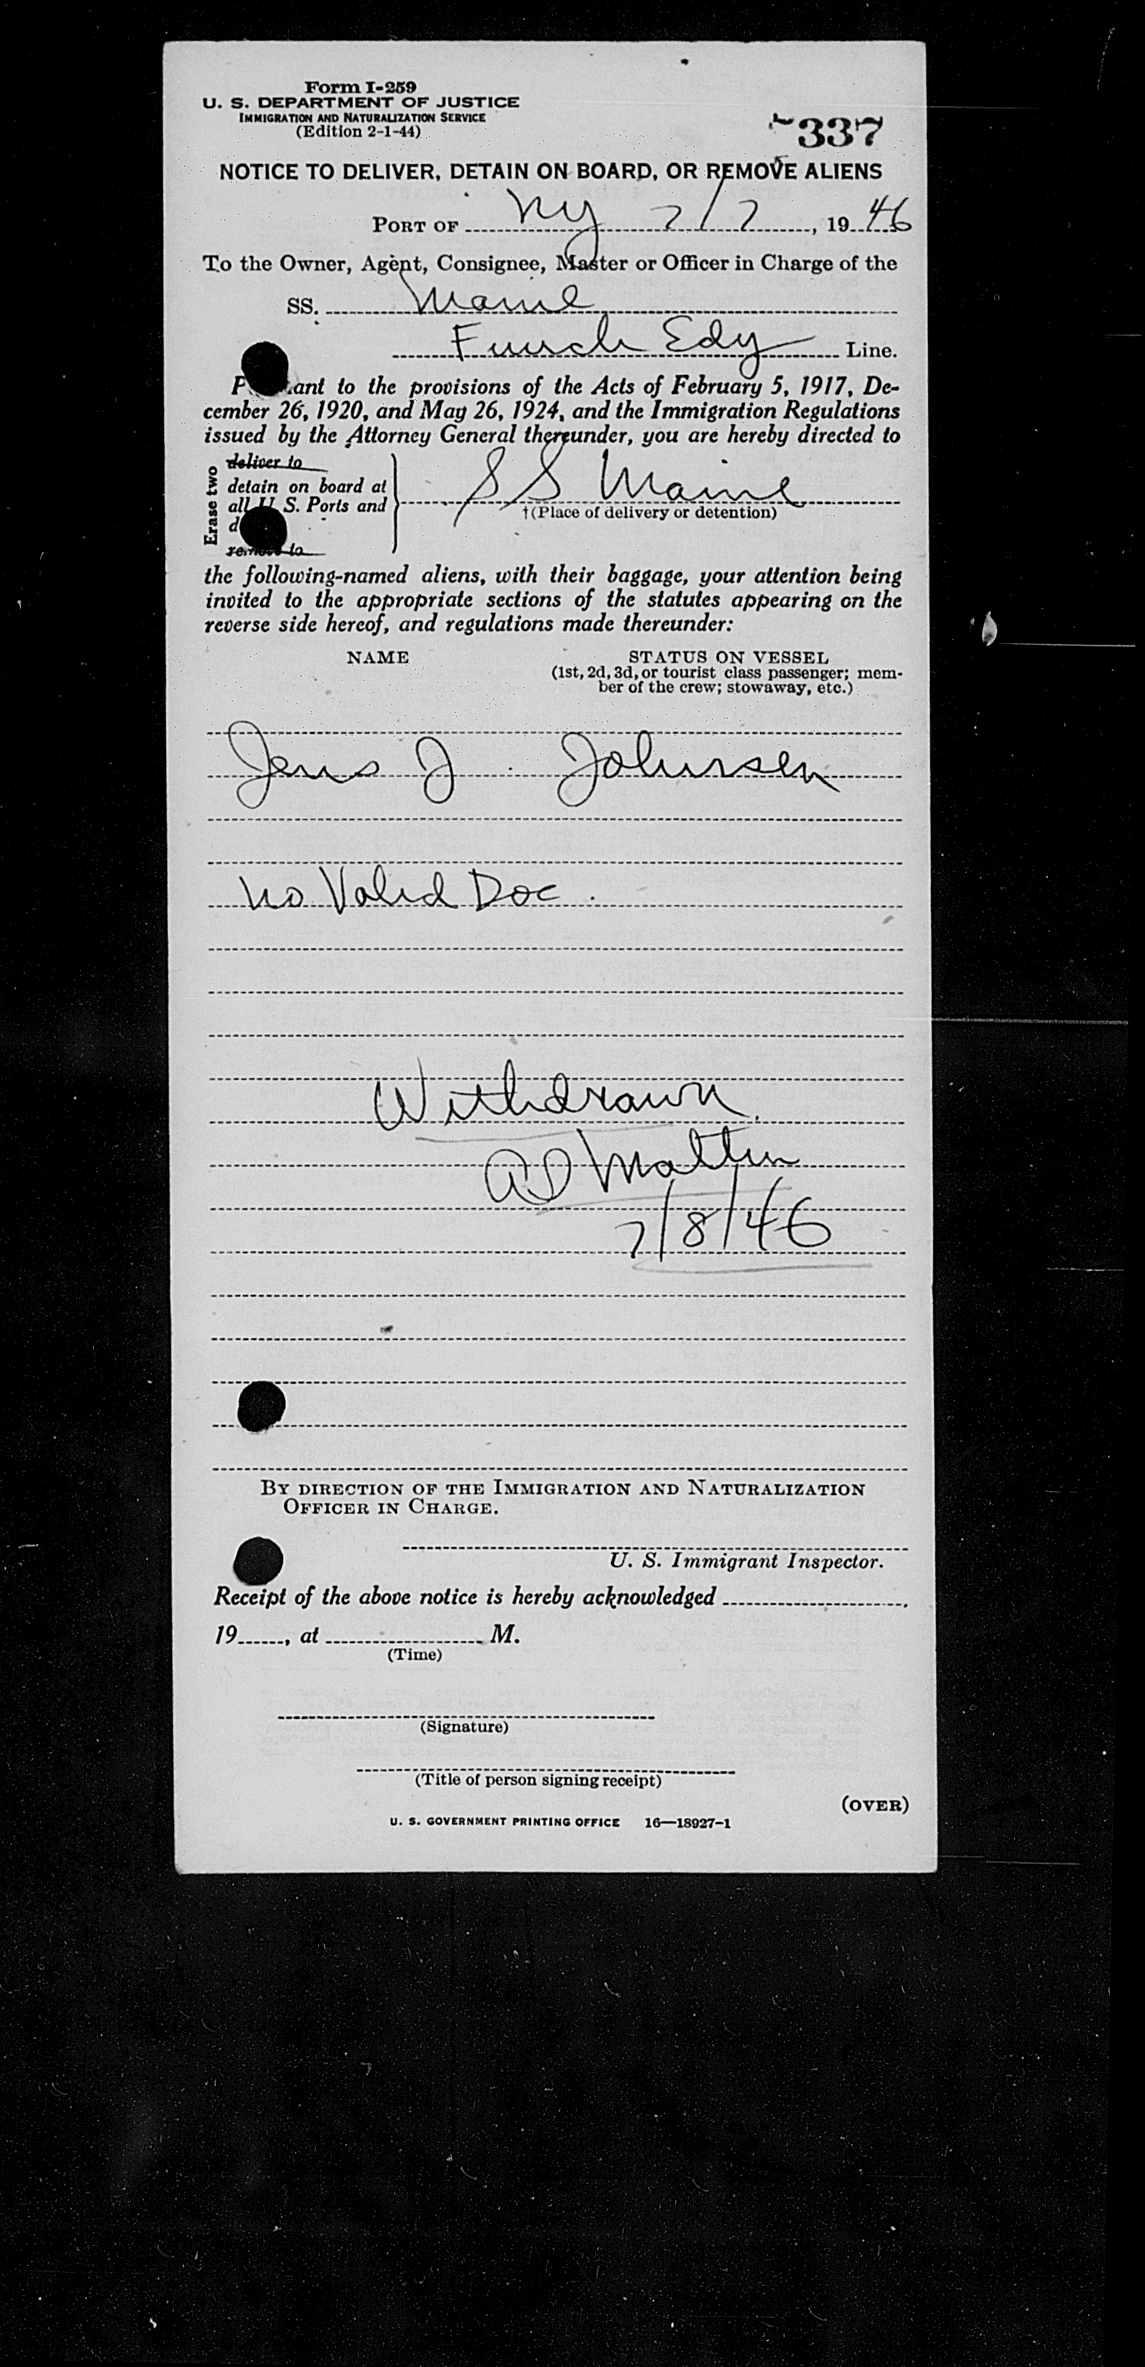 Form I-259
U. S. DEPARTMENT OF JUSTICE
IMMIGRATION AND NATURALIZATION SERVICE
(Edition 2-1-44)
337
NOTICE TO DELIVER, DETAIN ON BOARD, OR REMOVE ALIENS
PORT OF NY 7/7, 1946
To the Owner, Agent, Consignee, Master or Officer in Charge of the
SS. Maine
Funch Edy Line.
to the provisions of the Acts of February 5, 1917, De-
cember 26, 1920, and May 26, 1924, and the Immigration Regulations
issued by the Attorney General thereunder, you are hereby directed to
Erase two
deliver to
detain on board at
all U. S. Ports and
SS Maine
†(Place of delivery or detention)
remove to
the following-named aliens, with their baggage, your attention being
invited to the appropriate sections of the statutes appearing on the
reverse side hereof, and regulations made thereunder:
NAME STATUS ON VESSEL
(1st, 2d, 3d, or tourist class passenger; mem-
ber of the crew; stowaway, etc.)
Jens J Johnsen
No Valid Doc.
Withdrawn
7/8/46
BY DIRECTION OF THE IMMIGRATION AND NATURALIZATION
OFFICER IN CHARGE.
U. S. Immigrant Inspector.
Receipt of the above notice is hereby acknowledged
19 , at M.
(Time)
(Signature)
(Title of person signing receipt)
(OVER)
U. S. GOVERNMENT PRINTING OFFICE 16—18927-1